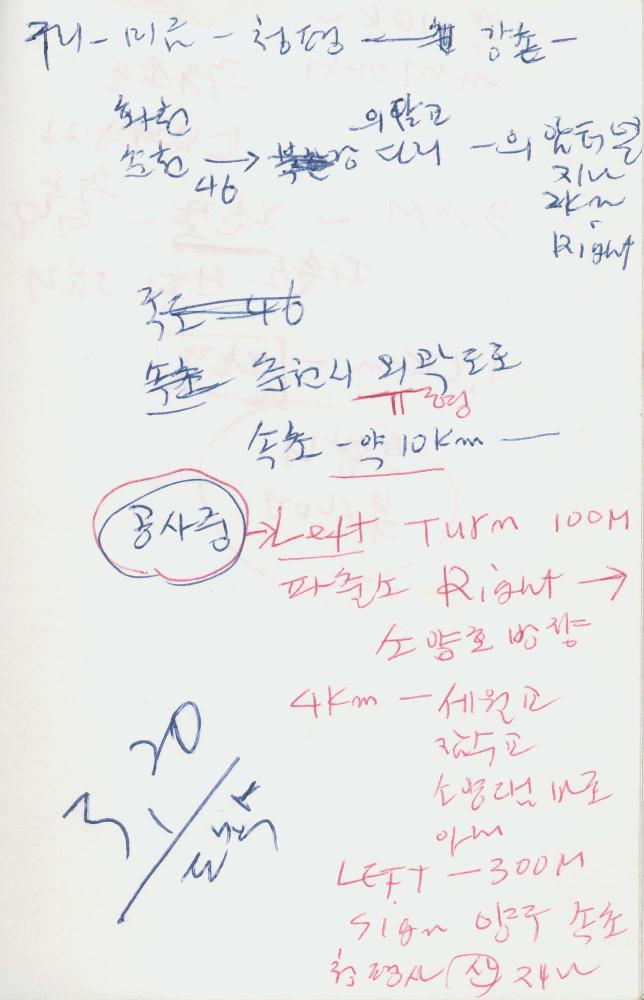 구리 - 미금 - 청평 - 강촌 -
화천
춘천 46 → 강 다리 - 의암터널
지나
2km
Right
국도 46
속초 춘천시 외곽도로
속초 - 약 10km -
공사중 → Left Turn 100M
파출소 Right →
소양호 방향
4km - 세월교
잠수교
소양댐 바로
아래
LEFT - 300M
Sign 양구 속초
청평사 지나
3.20